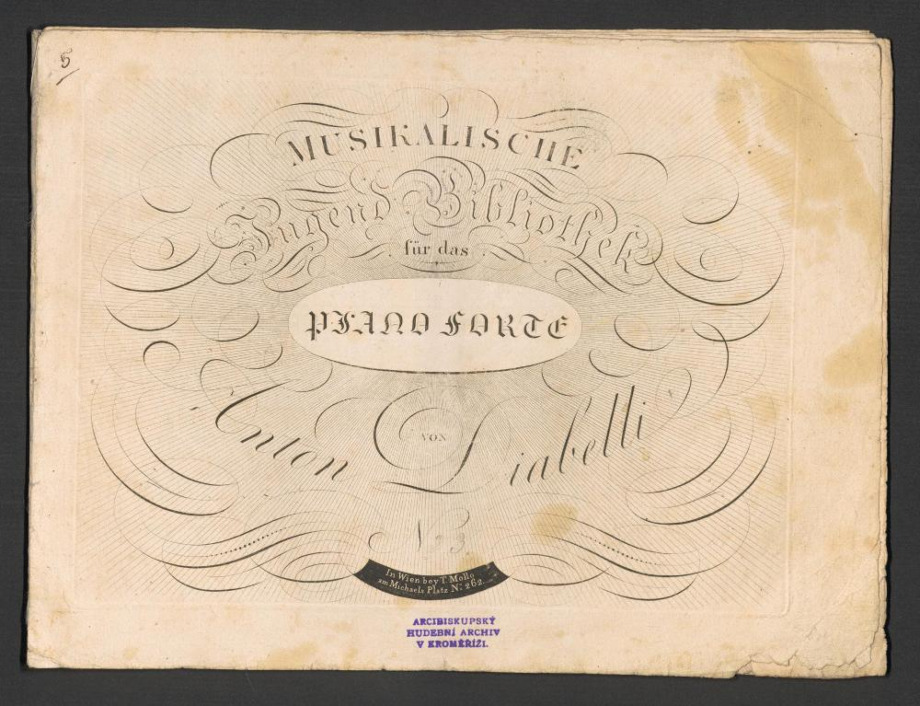 5
MUSIKALISCHE
Jugend Bibliothek
für das
PIANO FORTE
VON
Anton Diabelli
No 3
In Wien bey T. Mollo
am Michaels Platz No: 262.
ARCIBISKUPSKÝ
HUDEBNÍ ARCHIV
V KROMĚŘÍŽI.